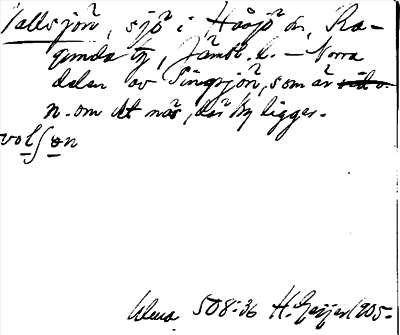 Vallsjön, sjö i Håsjö sn, Ra-
gunda tg, Jämtl. l. – Norra
delen av Singsjön, som är
n. om det näs, där by ligger.
volʃøn
508:36 H. Geijer 1905.